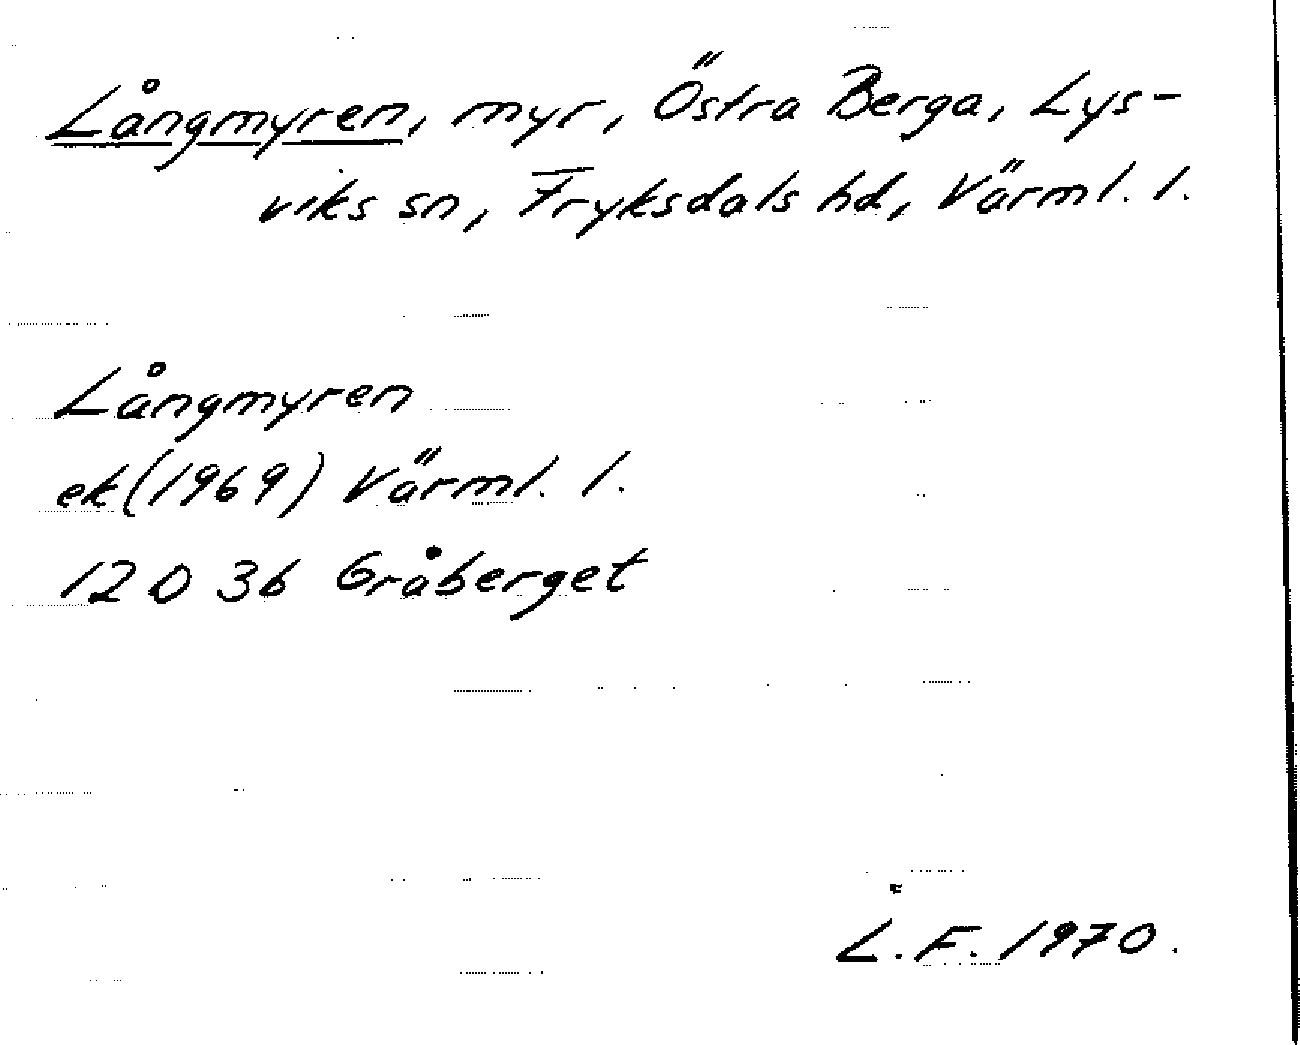 Långmyren, myr, Östra Berga, Lys-
viks sn, Fryksdals hd, Värml. l.
Långmyren
ek (1969) Värml. l.
12 D 3b Gråberget
L.F. 1970.